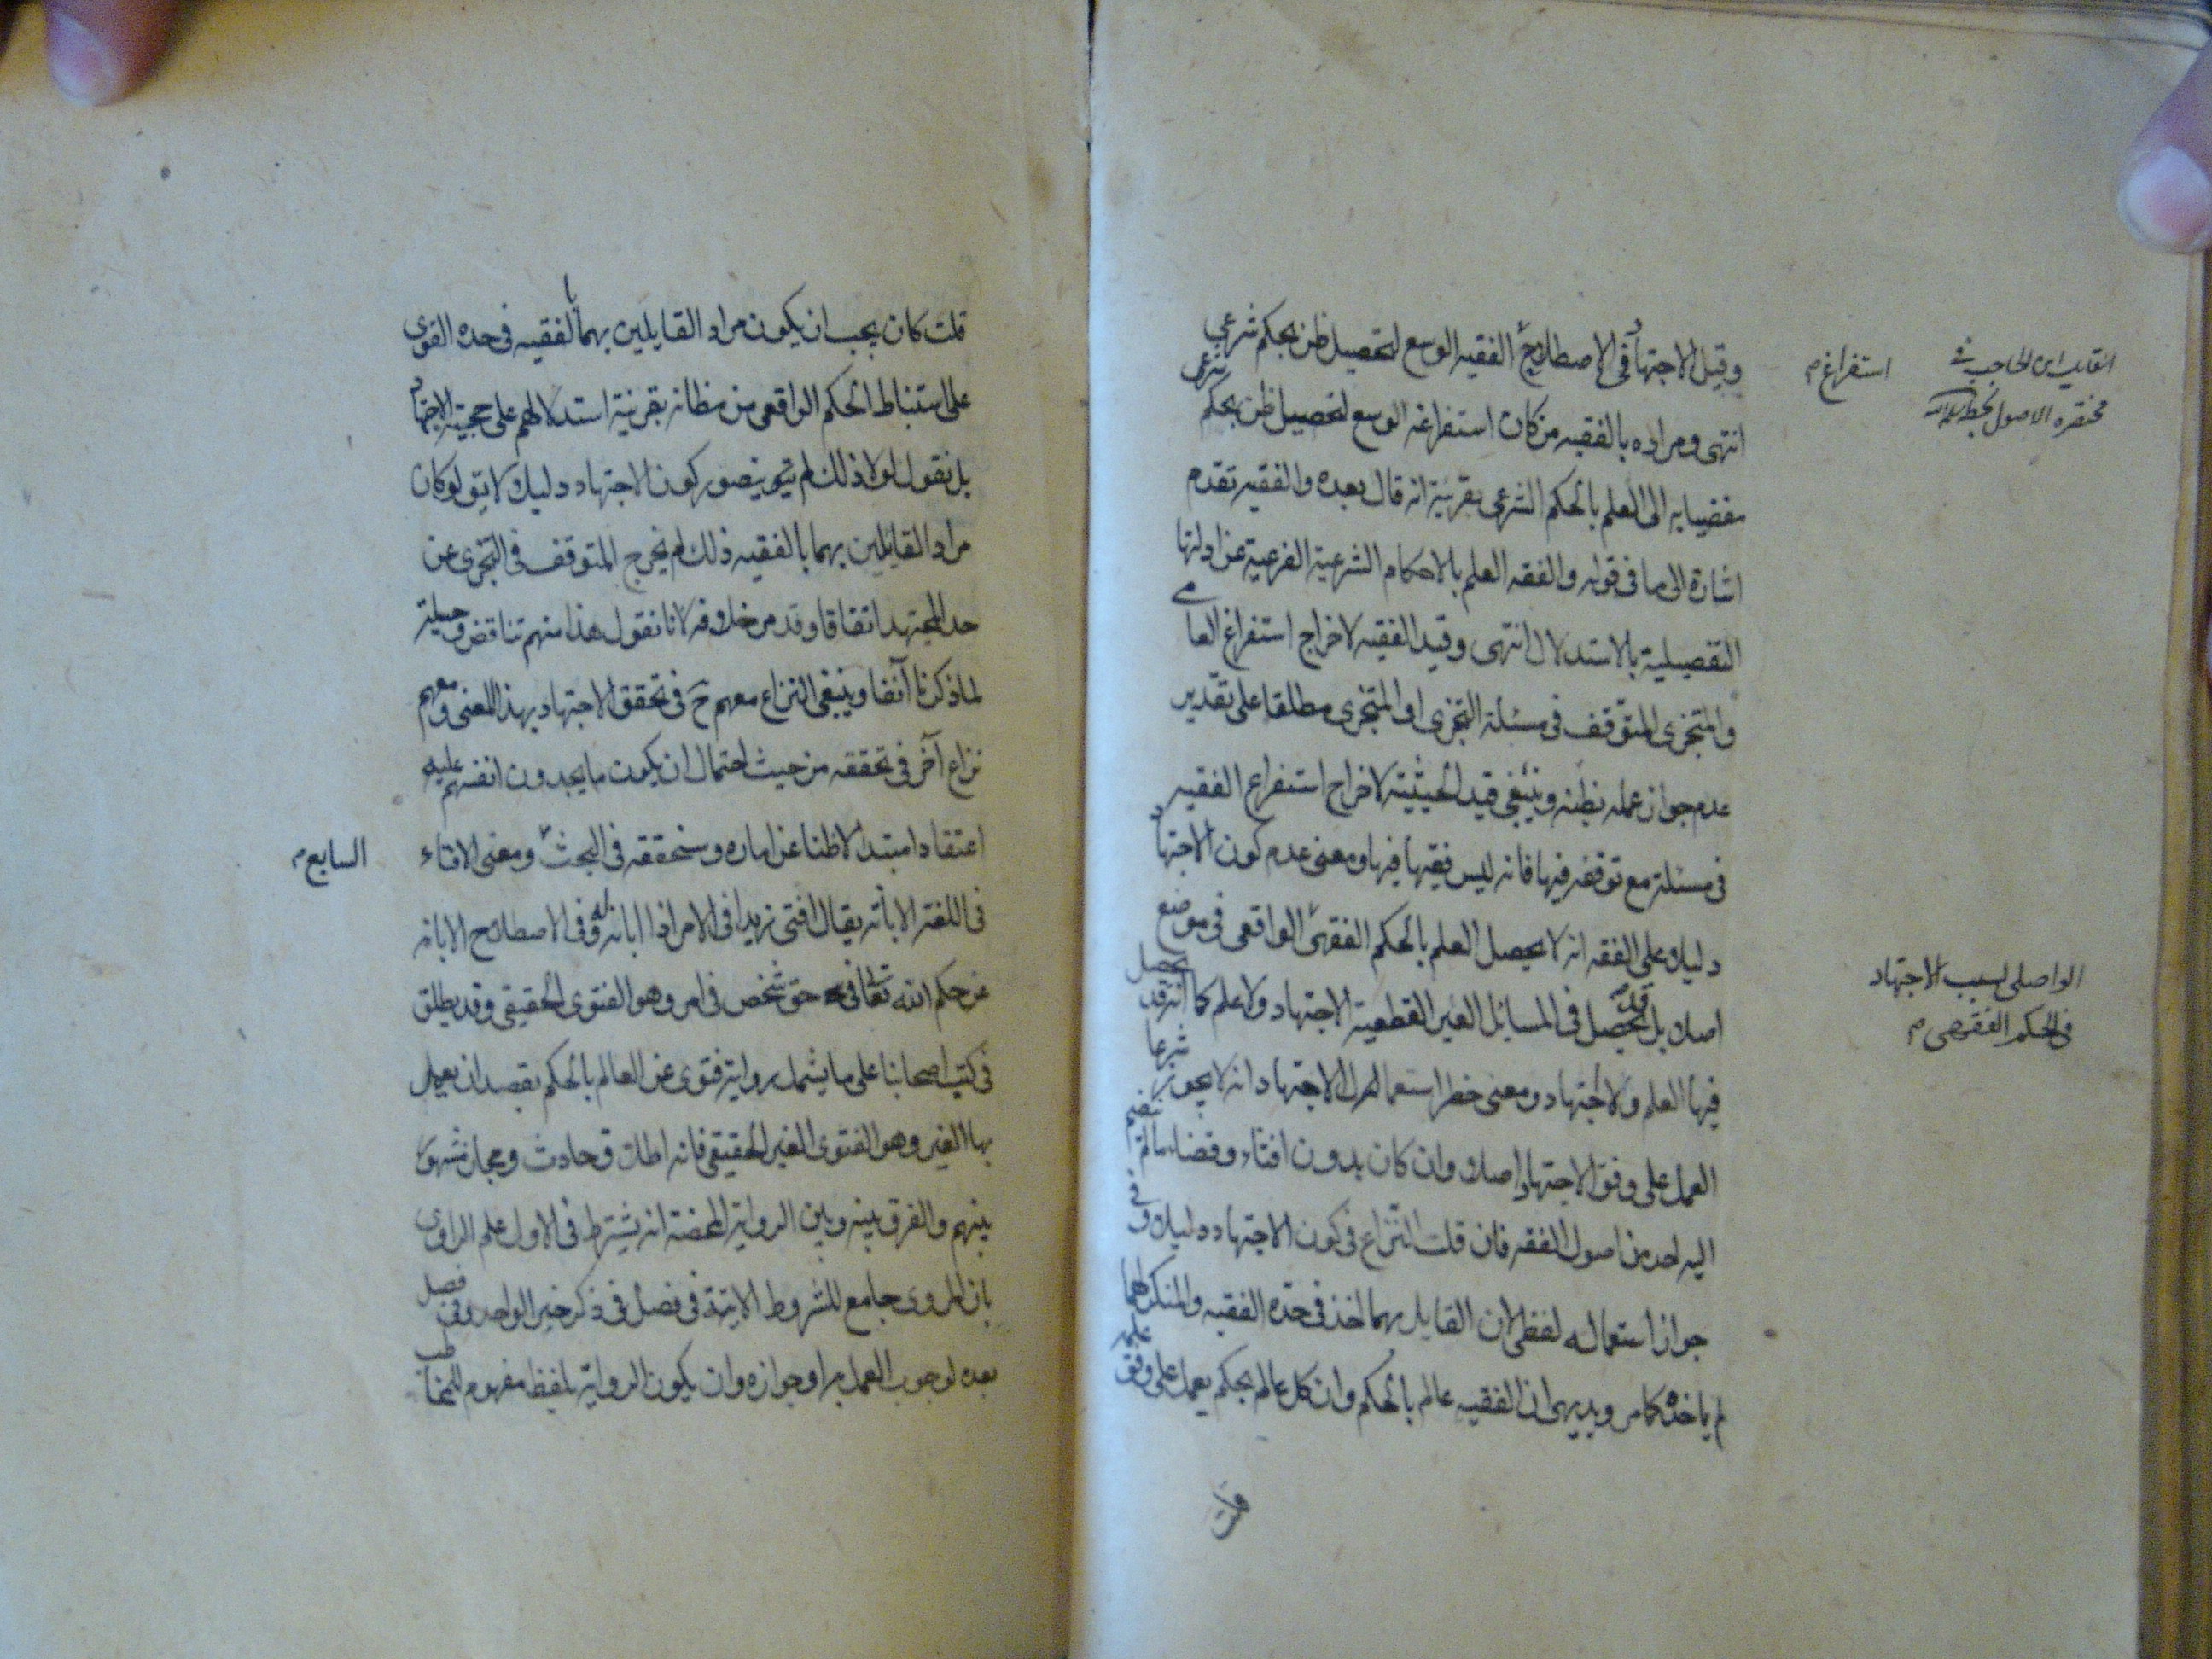 وقيل الاجتهاد في الاصطلاح الفقيه الوسع لتحصيل ظن بحكم شرعي
استفراغ م
القايل ابن الحاجب في
مختصره الاصول بخطه
انتهى ومراده بالفقيه من كان استفراغه الوسع لتحصيل ظن بحكم شرعي
مفضيا به الى العلم بالحكم الشرعي بقرينة انه قال بعده والفقيه تقدم
اشارة الى ما في قوله والفقه العلم بالاحكام الشرعية الفرعية عن ادلتها
التفصيلية بالاستدلال انتهى وقيد الفقيه لاخراج استفراغ العامي
والمتجزى المتوقف في مسئلة التجزى او المتجزى مطلقا على تقدير
عدم جواز عمله بظنه وينبغي قيد الحيثية لاخراج استفراغ الفقيه
في مسئلة مع توقفه فيها فانه ليس فقيها فيها ومعنى عدم كون الاجتهاد
دليلا على الفقه انه لا يحصل العلم بالحكم الفقهي الواقعي في موضع
الواصلي بسبب الاجتهاد
في الحكم الفقهي م
اصلا بل قد يحصل في المسائل الغير القطعية الاجتهاد ولا علم كما انه قد يحصل
فيها العلم ولا اجتهاد ومعنى حظر استعمالهم الاجتهاد انه لا يجوز شرعا
العمل على وفق الاجتهاد اصلا وان كان بدون افتاء وقضاء ما لم ينضم
اليه احد من اصول الفقه فان قلت النزاع في كون الاجتهاد دليلا وفي
جواز استعماله لفظي لان القايل بهما اخذ في حده الفقيه والمنكر لهما
لم ياخذه كما مر وبديهي ان الفقيه عالم بالحكم وان كل عالم بحكم يعمل على وفق علمه
قلت
قلت كان يجب ان يكون مراد القايلين بهما بالفقيه في حده القوى
على استنباط الحكم الواقعي من مظانه بقرينة استدلالهم على حجية الاجتهاد
بل نقول لولا ذلك لم يتصور كون الاجتهاد دليلا لا يق لو كان
مراد القايلين بهما بالفقيه ذلك لم يخرج المتوقف في التجزى عن
حد المجتهد اتفاقا وقد مر خلافه لانا نقول هذا منهم تناقض وحيلة
لما ذكرنا آنفا وينبغي النزاع معهم ح في تحقق الاجتهاد بهذا المعنى ومعهم
نزاع آخر في تحققه من حيث احتمال ان يكون ما يجدون انفسهم عليه
اعتقادا مبتدا لا ظنا عن امارة وسنحققه في البحث ومعنى الافتاء
السابع م
في اللغة الابانة يقال افتى زيدا في الامر اذا ابانه له وفي الاصطلاح الابانة
عن حكم الله تعالى في حق شخص في امر وهو الفتوى الحقيقي وقد يطلق
في كتب اصحابنا على ما يشمل رواية فتوى عن العالم بالحكم بقصد ان يعمل
بها الغير وهو الفتوى الغير الحقيقي فانه اطلاق حادث ومجاز مشهور
بينهم والفرق بينه وبين الرواية المحضة انه يشترط في الاول علم الراوى
بان المروى جامع للشروط الاتية في فصل في ذكر خبر الواحد وفي فصل
بعده لوجوب العمل به او جوازه وان يكون الرواية بلفظ مفهوم للمخاطب